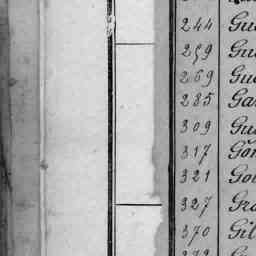 244 Gu
259 Gu
269 Gu
285 Ga
309 Gu
317 Gon
321 Go
327 Gra
370 Gil